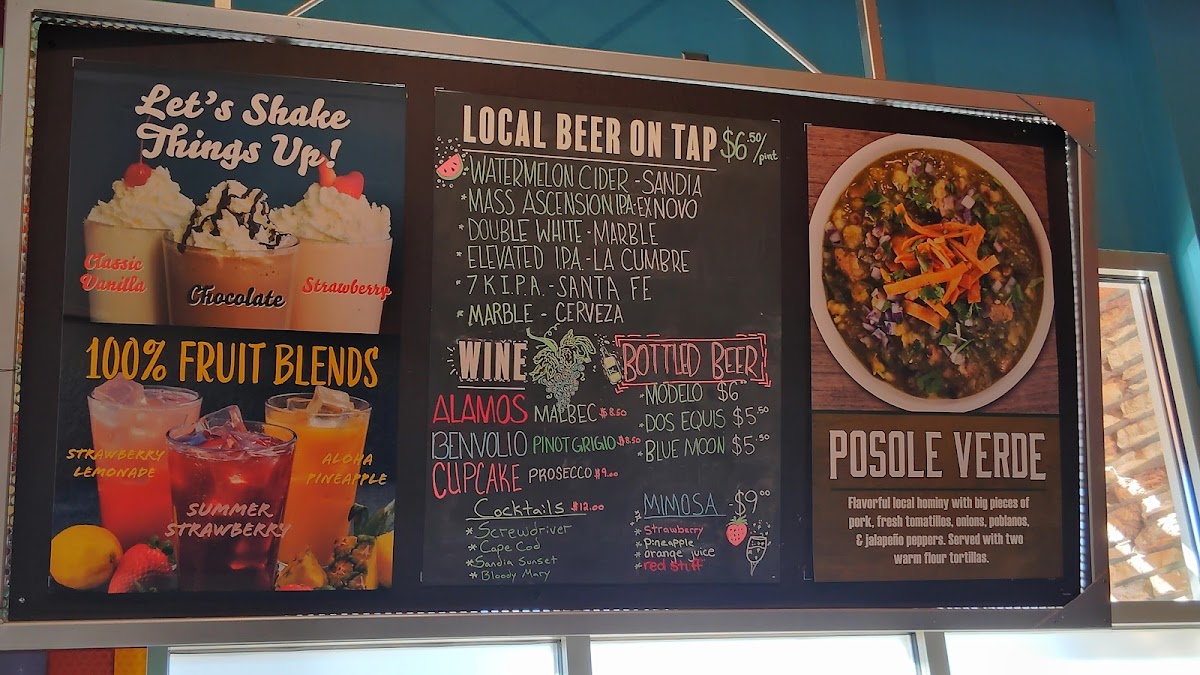 Let's Shake
Things Up!
Classic
Vanilla
Chocolate
Strawberry
100% FRUIT BLENDS
STRAWBERRY
LEMONADE
SUMMER
STRAWBERRY
ALOHA
PINEAPPLE
LOCAL BEER ON TAP $6.50/pint
*WATERMELON CIDER - SANDIA
*MASS ASCENSION IPA-EX NOVO
*DOUBLE WHITE - MARBLE
*ELEVATED IPA. - LA CUMBRE
*7 K I.P.A. - SANTA FE
*MARBLE - CERVEZA
WINE
ALAMOS MALBEC $8.50
BENVOLIO PINOT GRIGIO $8.50
CUPCAKE PROSECCO $9.00
Cocktails $12.00
*Screwdriver
*Cape Cod
*Sandia Sunset
*Bloody Mary
BOTTLED BEER
*MODELO $6
*DOS EQUIS $5.50
*BLUE MOON $5.50
MIMOSA - $9.00
*Strawberry
*Pineapple
*orange juice
*red stuff
POSOLE VERDE
Flavorful local hominy with big pieces of
pork, frosh tomatillos, onions, poblanos,
& jalapeño peppers. Served with two
warm flour tortillas.